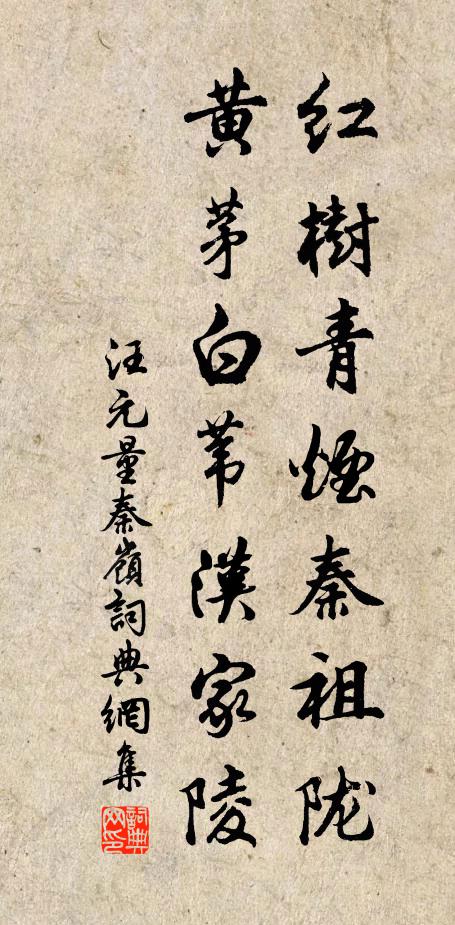 红樹青煙秦祖陇
黄茅白苇漢家陵
汪元量秦嶺詞典網集
詞典網印